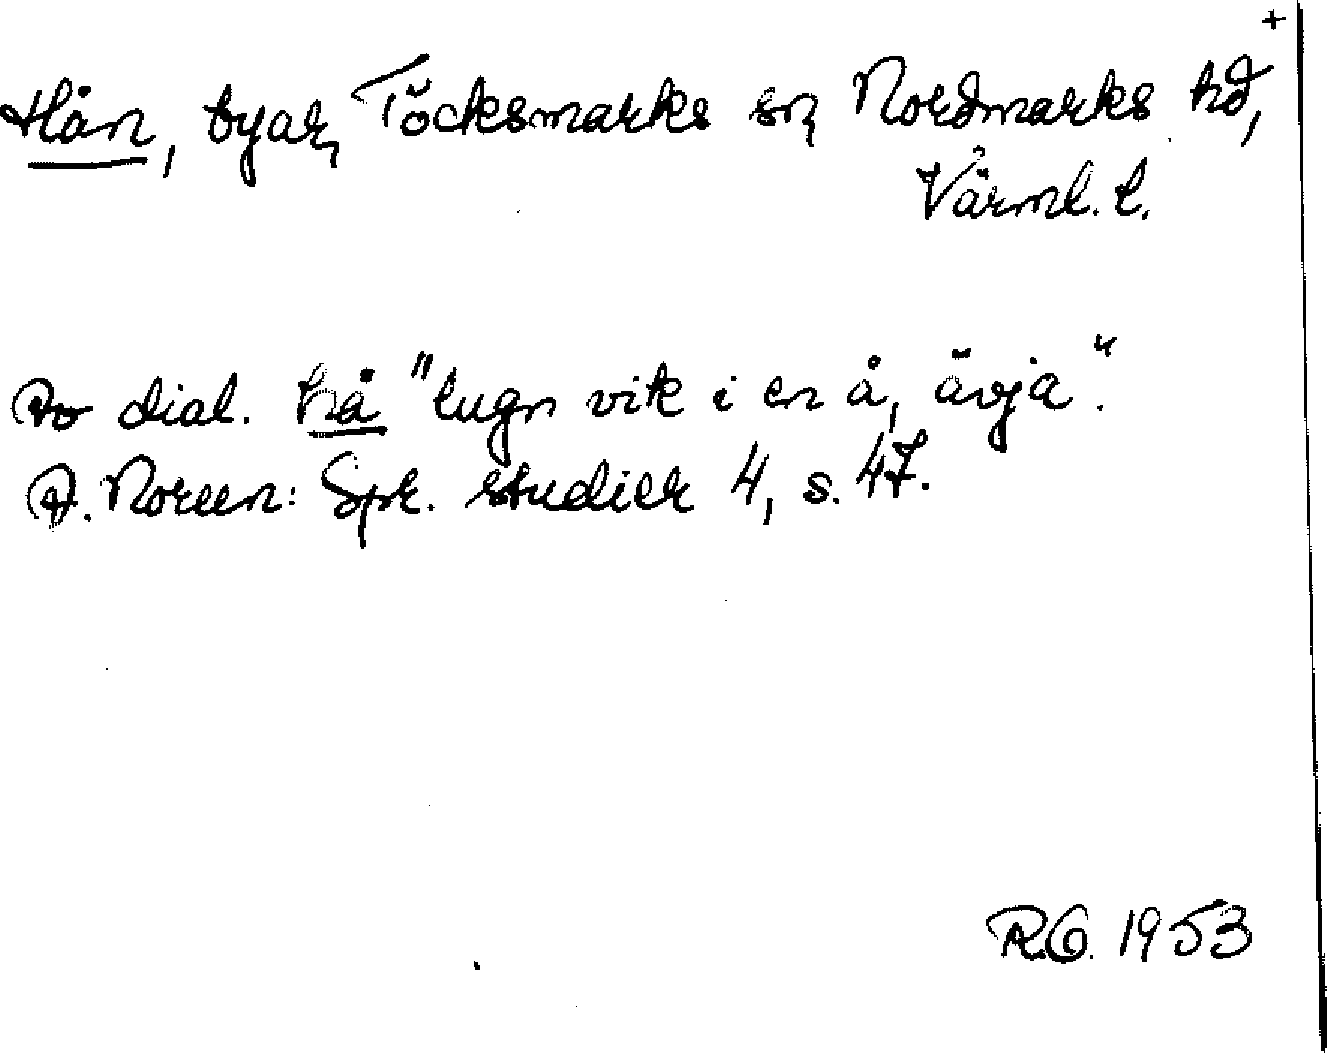 +
Hån, byar, Töcksmarks sn, Nordmarks hd,
Värml. l.
Av dial. hå "lugn vik i en å, ävja".
A. Noreen: Spr. studier 4, s. 47.
R.O. 1953